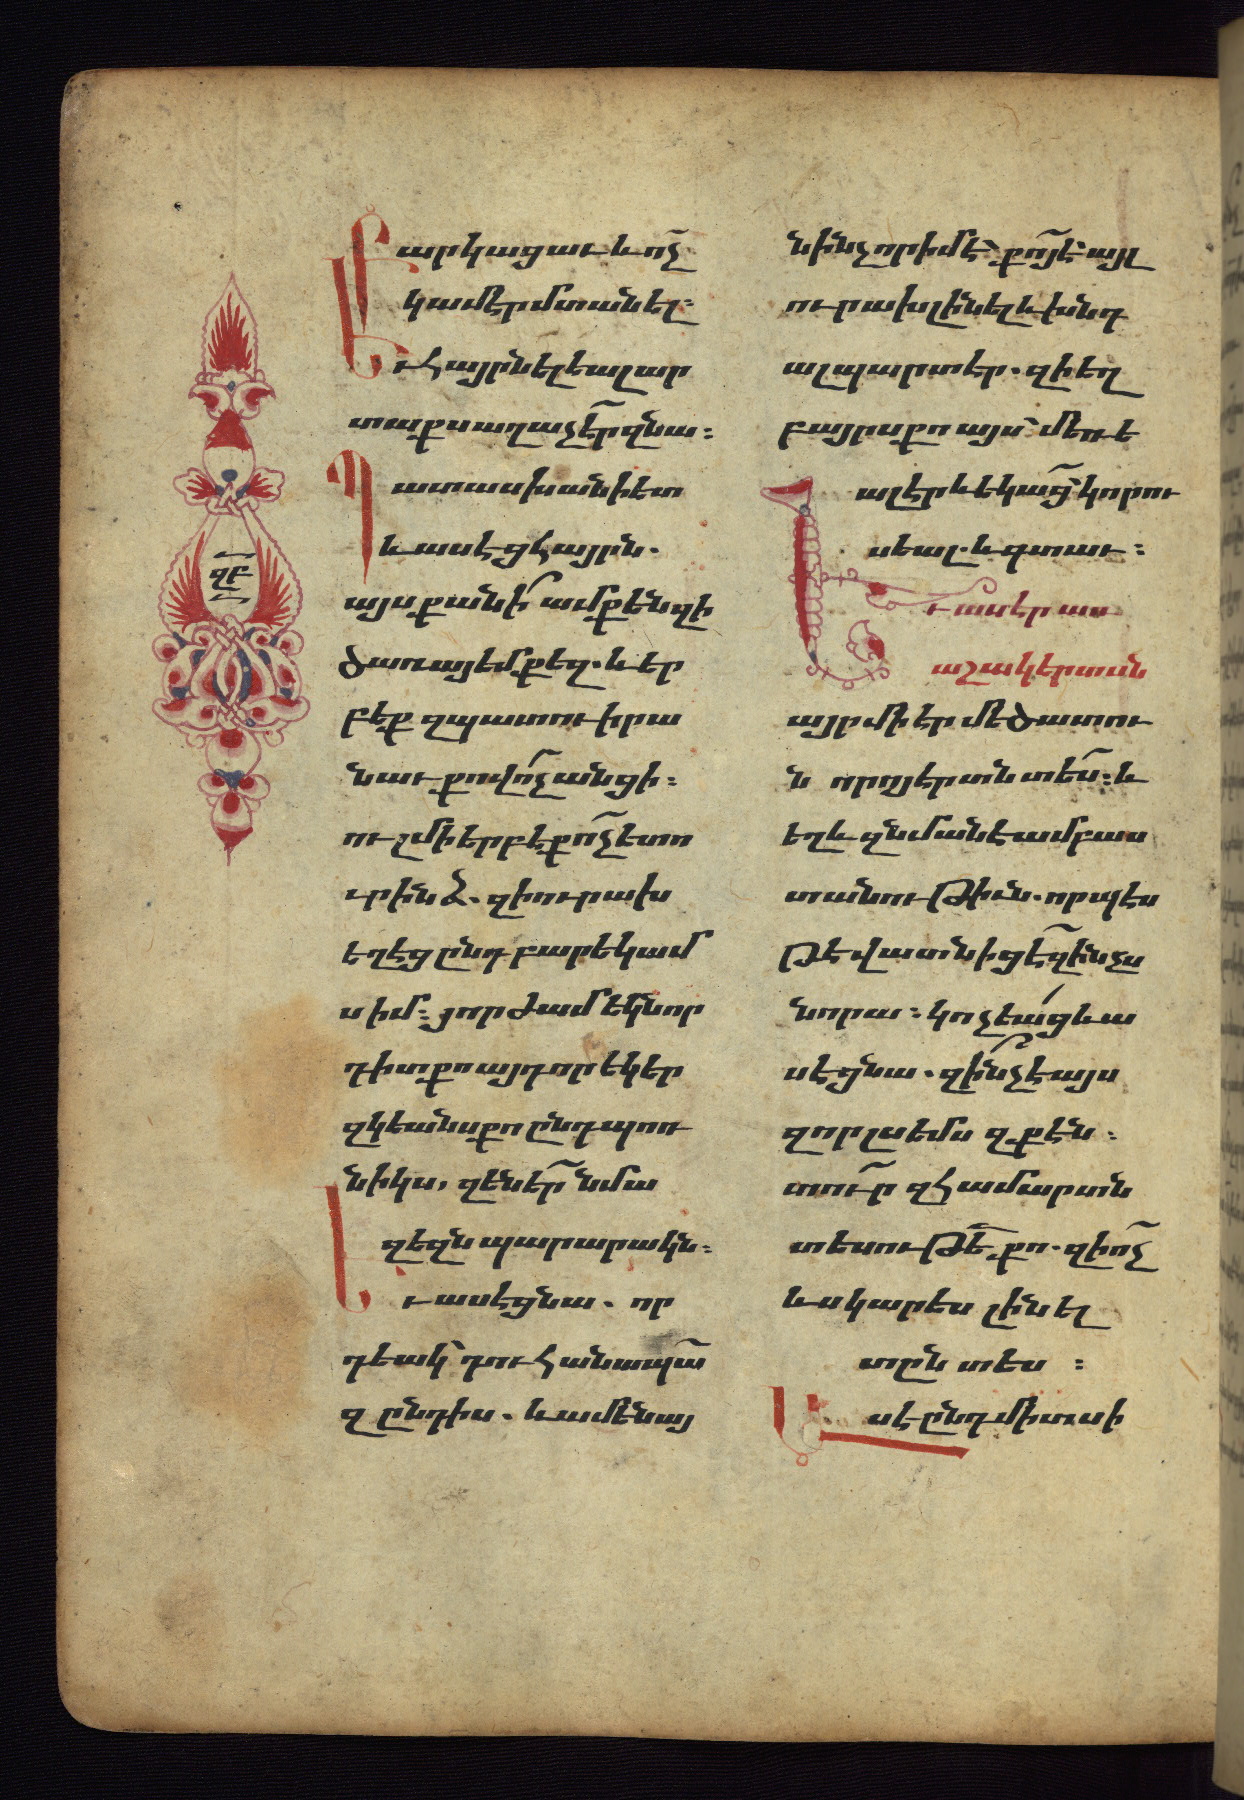 զբ
Բարկացաւ և ո՛չ
կամէր մտանել։
Եւ հայրն ելեալ ար
տաքս աղաչէր զնա։
Պատասխանի ետ
և ասէ ցհայրն.
այսքանի՛ ամք են զի
ծառայեմ քեզ. և եր
բեք զպատուիրա
նաւ քով ո՛չ անցի։
ուլ մի երբեք ո՛չ ետո
ւր ինձ. զի ուրախ
եղէց ընդ բարեկամ
ս իմ։ յորժամ եկն որ
դիտ քո այդ որ եկեր
զկեանս քո ընդ պոռ
նիկս, զենէր նմա
զեզն պարարակն։
Եւ ասէ ցնա. որ
դեակ՝ դու հանապա
զ ընդ իս. և ամենայ
ն ինչ որ իմ է՝ քոյ է՝ այլ
ուրախ լինել և խնդ
ալ պարտ էր. զի եղ
բայրս քո այս՝ մեռե
ալ էր և եկաց՝ կորու
սեալ. և գտաւ։
Եւ ասէր աս
աշակերտսն
այր մի էր մեծատու
ն որոյ էր տնտես։ և
եղև զնմանէ ամբաս
տանութիւն. որպէս
թե վատնիցէ զինչս
նորա։ կոչեաց և ա
սէ ցնա. զի՞նչ է այս
զոր լսեմս զքէն։
տուր զհամարտն
տեսութե քո. զի ո՛չ
ևս կարես լինել
տընտես։
Ասէ ընդ միտս ի